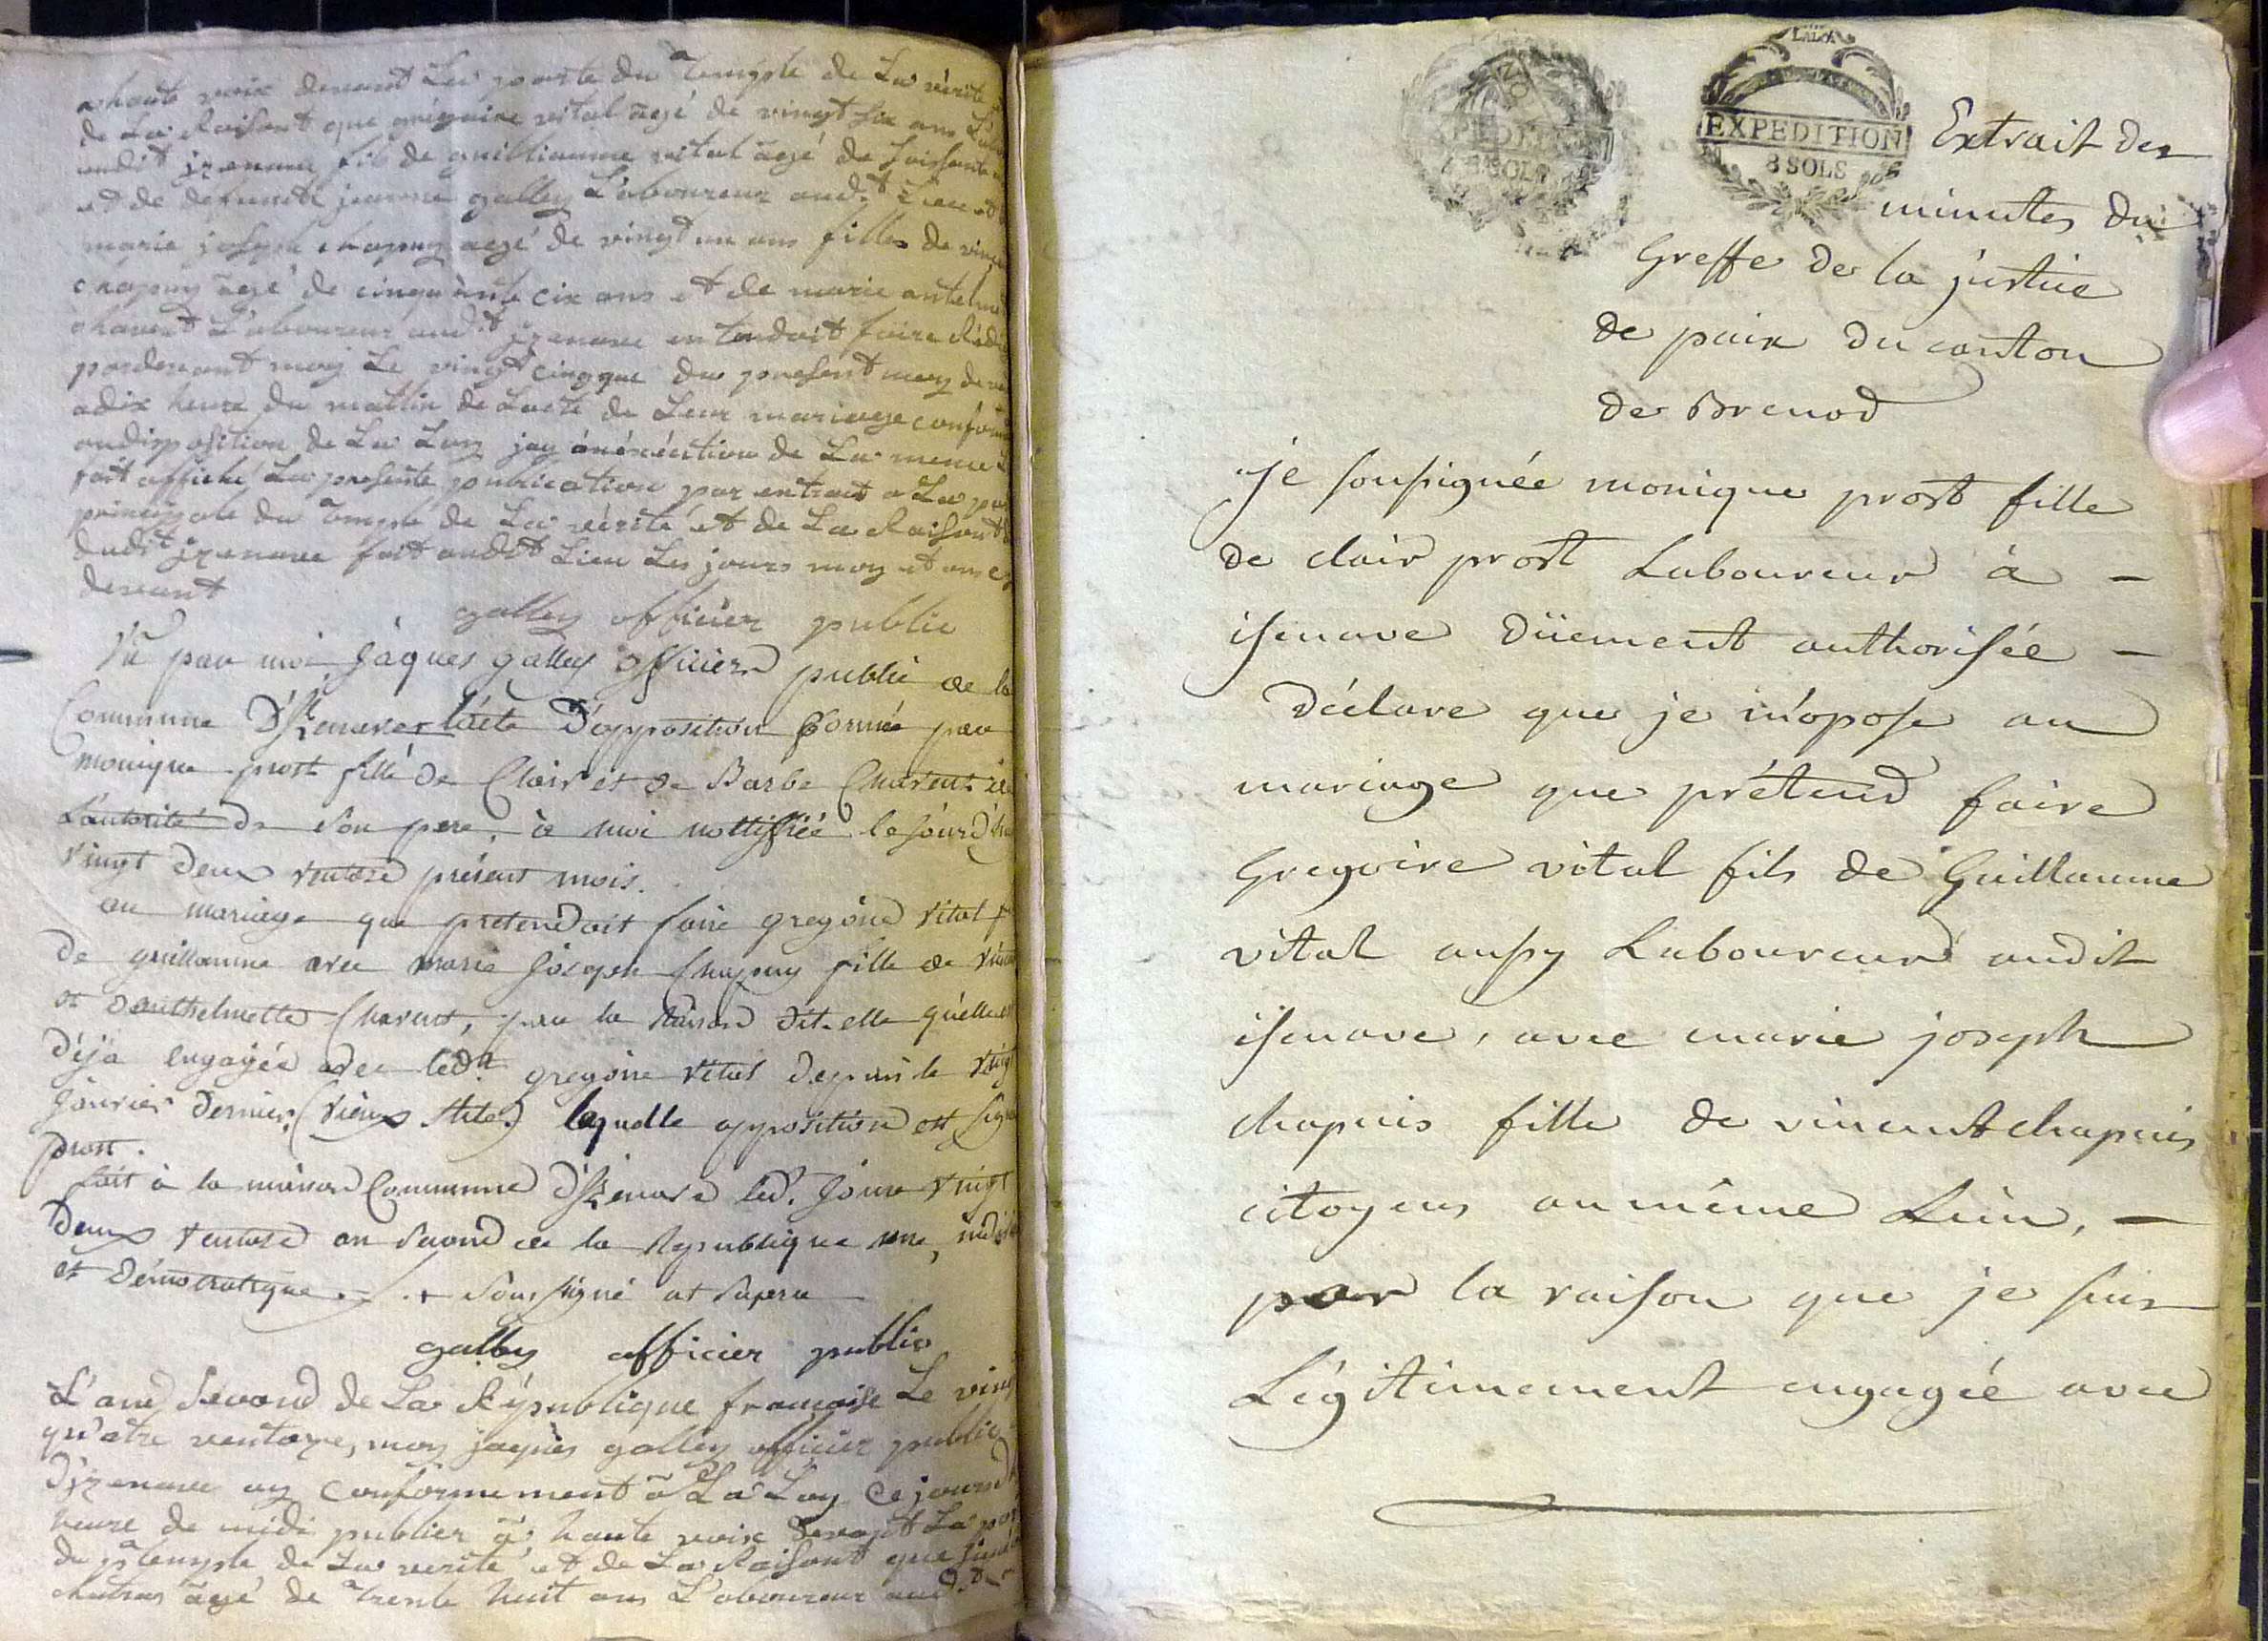 a haute voix devant La porte du temple de La vérité
de La Raisont que grégoire vital agé de vingt six ans
audit jzenave fils de guilliaume vital agé de soissante
et de defuncte jeanne galley L'aboureur aud.t Lieu et
marie joseph chapuy agé de vingt un ans filles de
chapuy agé de cinquante cix ans et de marie
L'aboureur aud.t jzenave entendoit faire
pardevant moy Le vingt cinqque du present moy de
a dix heure du mattin de Lacte de Leur mariage
audisposition de La Loy jay anéxécution de La meme
fait affiché La presente publication par extrait a La
principale du temple de La vérité et de La Raisont
dudit jzenave fait audit Lieu Les jours moy et ans
devant
galley officier public
Vû par moi Jâques galley officier public de la
Commune D'Jzenave l'acte D'opposition formée par
monique prost fille de Clair et de Barbe Charvet
L'autorité de son pere, à moi nottiffiée le jourd'
vingt Deux ventose présent mois.
au mariage que pretendoit faire gregoire Vital
de guillaume avec marie Joseph Chapuy fille de
et d'anthelmette Charvet, par la Raison dit-elle quelle
Déja engagée avec led.t gregoire vital Depuis le vingt
Janvier Dernier, (vieux stile) laquelle opposition est
prost.
fait à la maison Commune D'Jzenave led. Jour vingt
Deux ventose an second de la Republique une,
et Démocratique. soussigné ut supra
galley officier public
L'and Second de La République française Le
qu'atre ventoze, moy jaques galley officier public
D'jzenave ay conformement à La Loy Ce jourd
heure de midi publier à haute voix Devant La
du temple de La verité et de La Raisont que
agé de trente huit ans L'aboureur aud.t
EXPEDITION
8 SOLS
EXPEDITION
8 SOLS
Extrait des
minutes du
Greffe de la justice
de paix du canton
de Brenod
je soussignée monique prost fille
de clair prost Laboureur à –
isenave düement authorisée –
Déclare que je m'opose au
mariage que prétend faire
Gregoire vital fils de Guillaume
vital aussy Laboureur audit
isenave, avec marie joseph
chapuis fille de vincent chapuis
citoyens au même Lieu, –
par la raison que je suis
Légitimement engagée avec